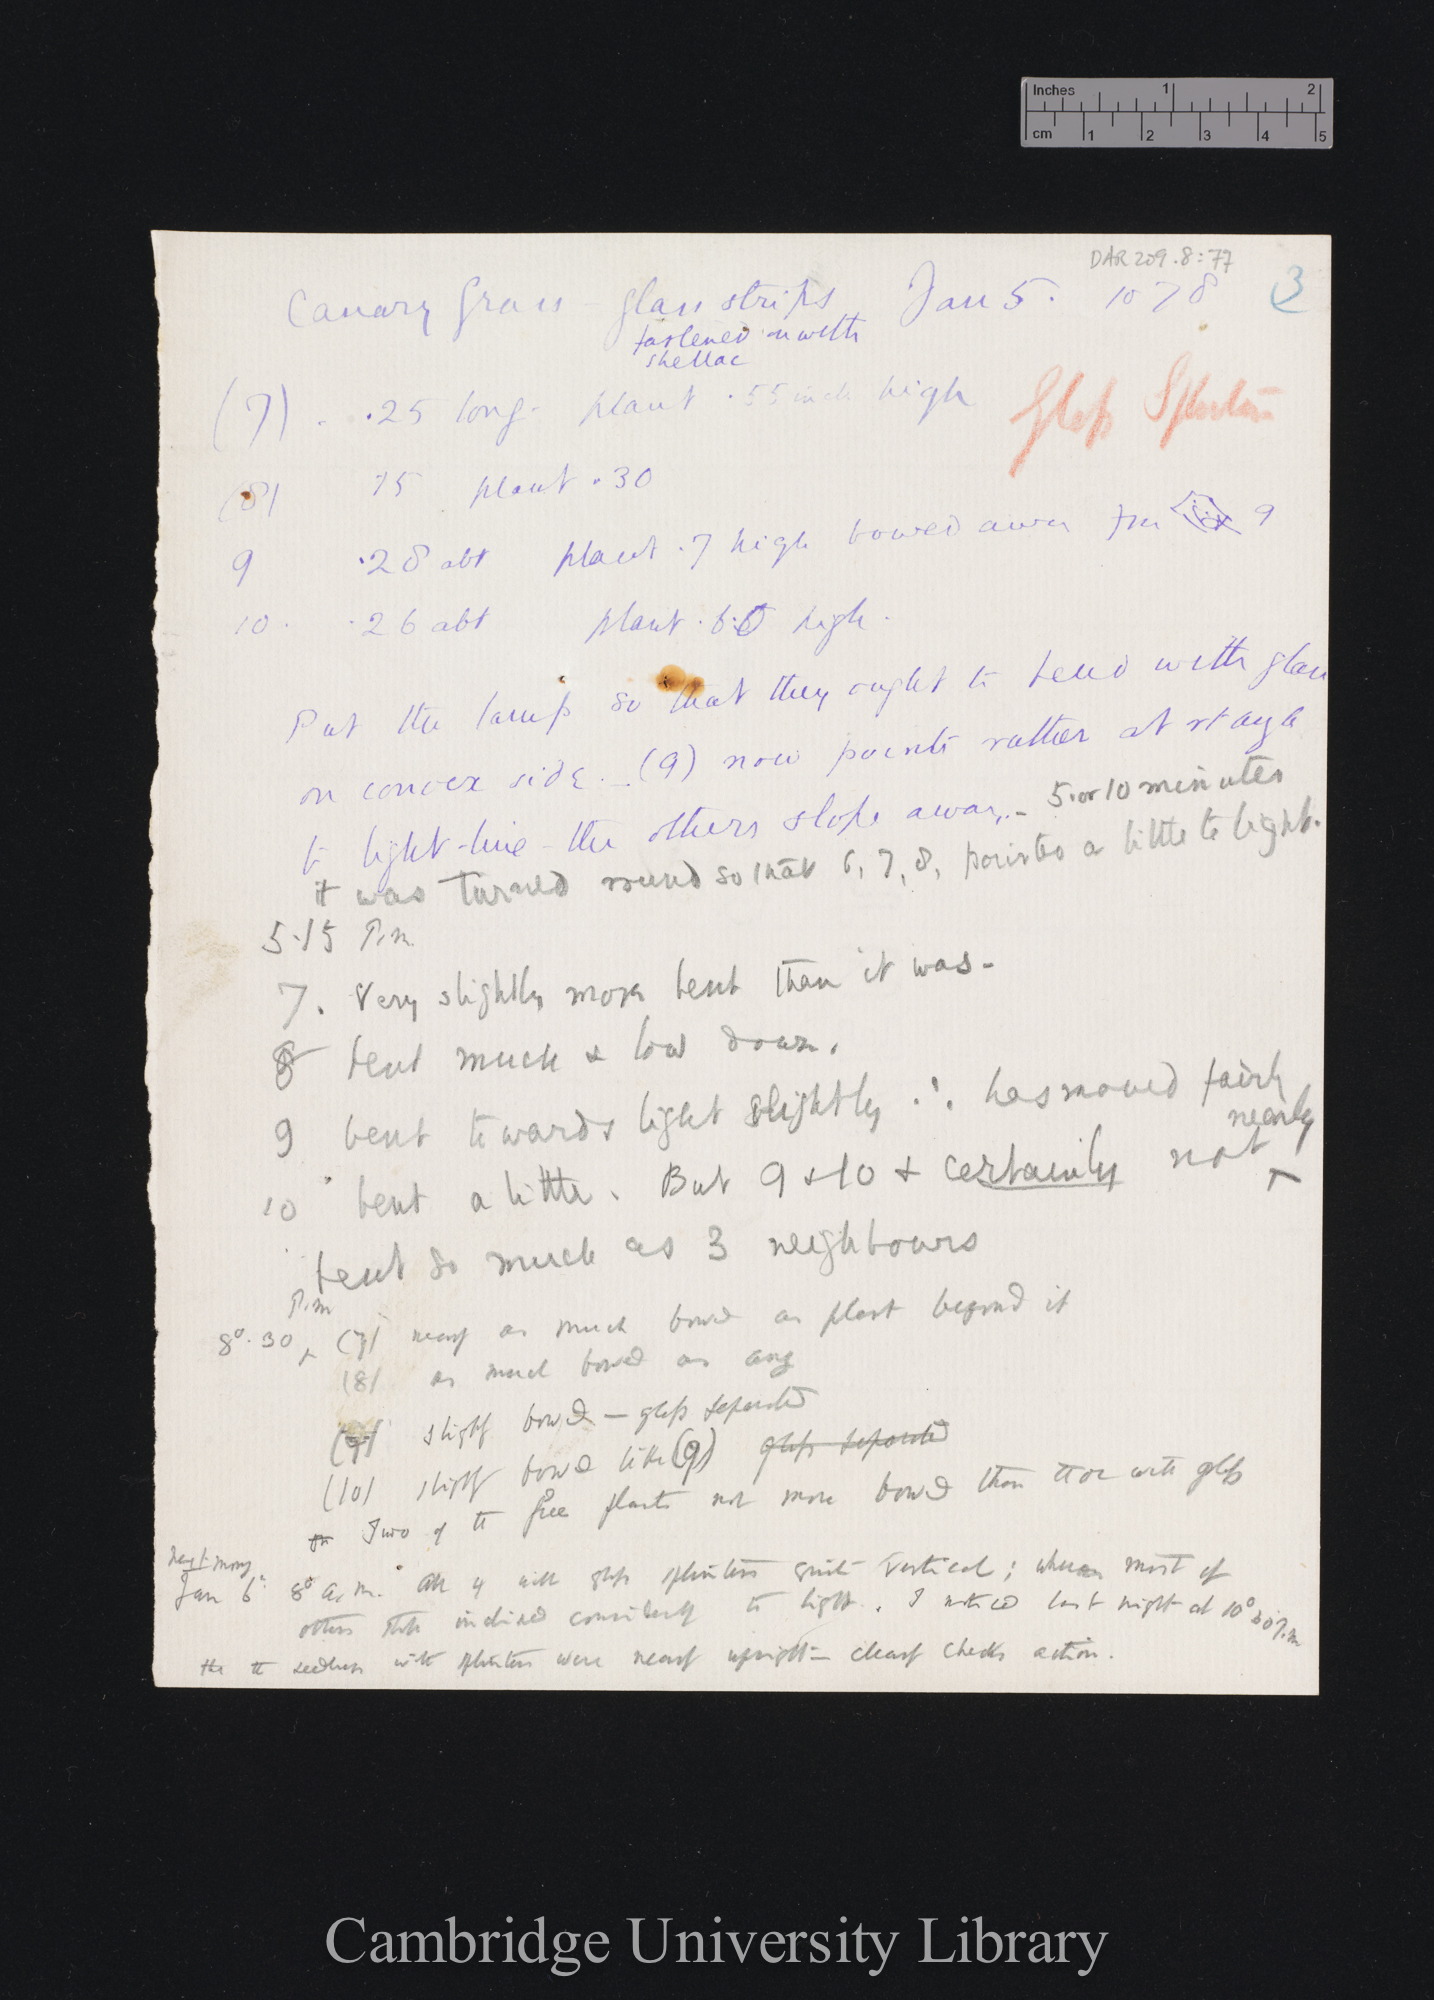 Inches 1 2
cm 1 2 3 4 5
DAR 209.8:77
3
Canary Grass - glass strips Jan 5. 1878
fastened on with
shellac
Glass Splinters
(7). .25 long - plant .55 inch high
(8) 15 plant .30
9 .28 abt plant .7 high bowed away from 9
10. .26 abt plant .60 high.
Put the lamp so that they ought to bend with glass
on convex side. - (9) now points rather at rt angle
to light-line - the others slope away. - 5 or 10 minutes
it was turned round so that 6, 7, 8, pointed a little to light.
5.15 P.m.
7. Very slightly more bent than it was -
8 bent much & low down.
9 bent towards light slightly ∴ has moved fairly
nearly
10 bent a little. But 9 & 10 & certainly not ^
bent so much as 3 neighbours
P.m
8°.30 ^ (7) nearly as much bowed as plant beyond it
(8) as much bowed as any
(9) slightly bowed — glass separated
(10) slightly bowed like (9) glass separated
Two of the free plants not more bowed than those with glass
Next morng
Jan 6th 8° a.m. All 4 with glass splinters quite vertical; whereas most of
others still inclined considerably to light. I noticed last night at 10° 30' P.m
the seedlings with splinters were nearly upright — clearly checks action.
Cambridge University Library